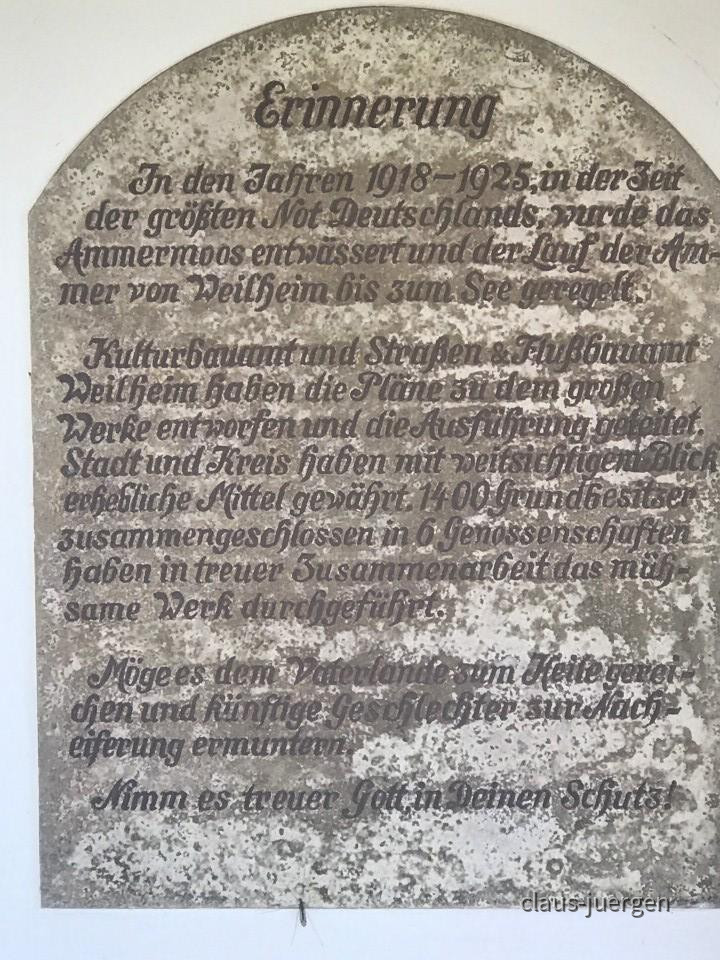 Erinnerung
In den Jahren 1918-1925, in der Zeit
der größten Not Deutschlands, wurde das
Ammermoos entwässert und der Lauf der Am-
mer von Weilheim bis zum See geregelt.
Kulturbauamt und Straßen & Flußbauamt
Weilheim haben die Pläne zu dem großen
Werke entworfen und die Ausführung geleitet.
Stadt und Kreis haben mit weitsichtigem Blick
erhebliche Mittel gewährt. 1400 Grundbesitzer
zusammengeschlossen in 6 Genossenschaften
haben in treuer Zusammenarbeit das müh-
same Werk durchgeführt.
Möge es dem Vaterlande zum Heile gerei-
chen und künftige Geschlechter zur Nach-
eiferung ermuntern.
Nimm es treuer Gott in Deinen Schutz!
claus-juergen